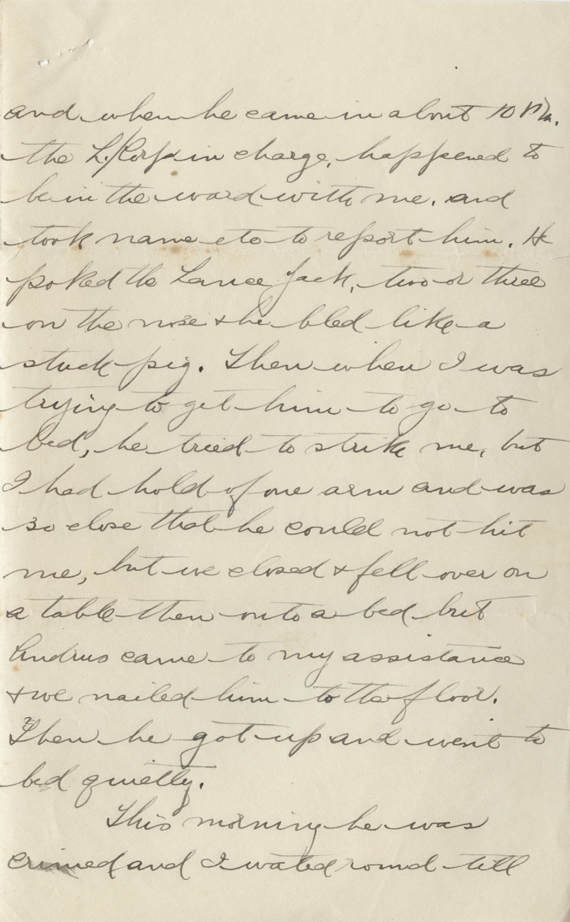 and when he came in about 10 P.M.
the L/Corp in charge, happened to
be in the ward with me, and
took name etc to report him. He
poked the Lance Jack, two or three
on the nose & he bled like a
stuck pig. Then when I was
trying to get him to go to
bed, he tried to strike me, but
I had hold of one arm and was
so close that he could not hit
me, but we closed & fell over on
a table then onto a bed but
Andrus came to my assistance
& we nailed him to the floor.
Then he got up and went to
bed quietly.
This morning he was
crimed and I waited round till